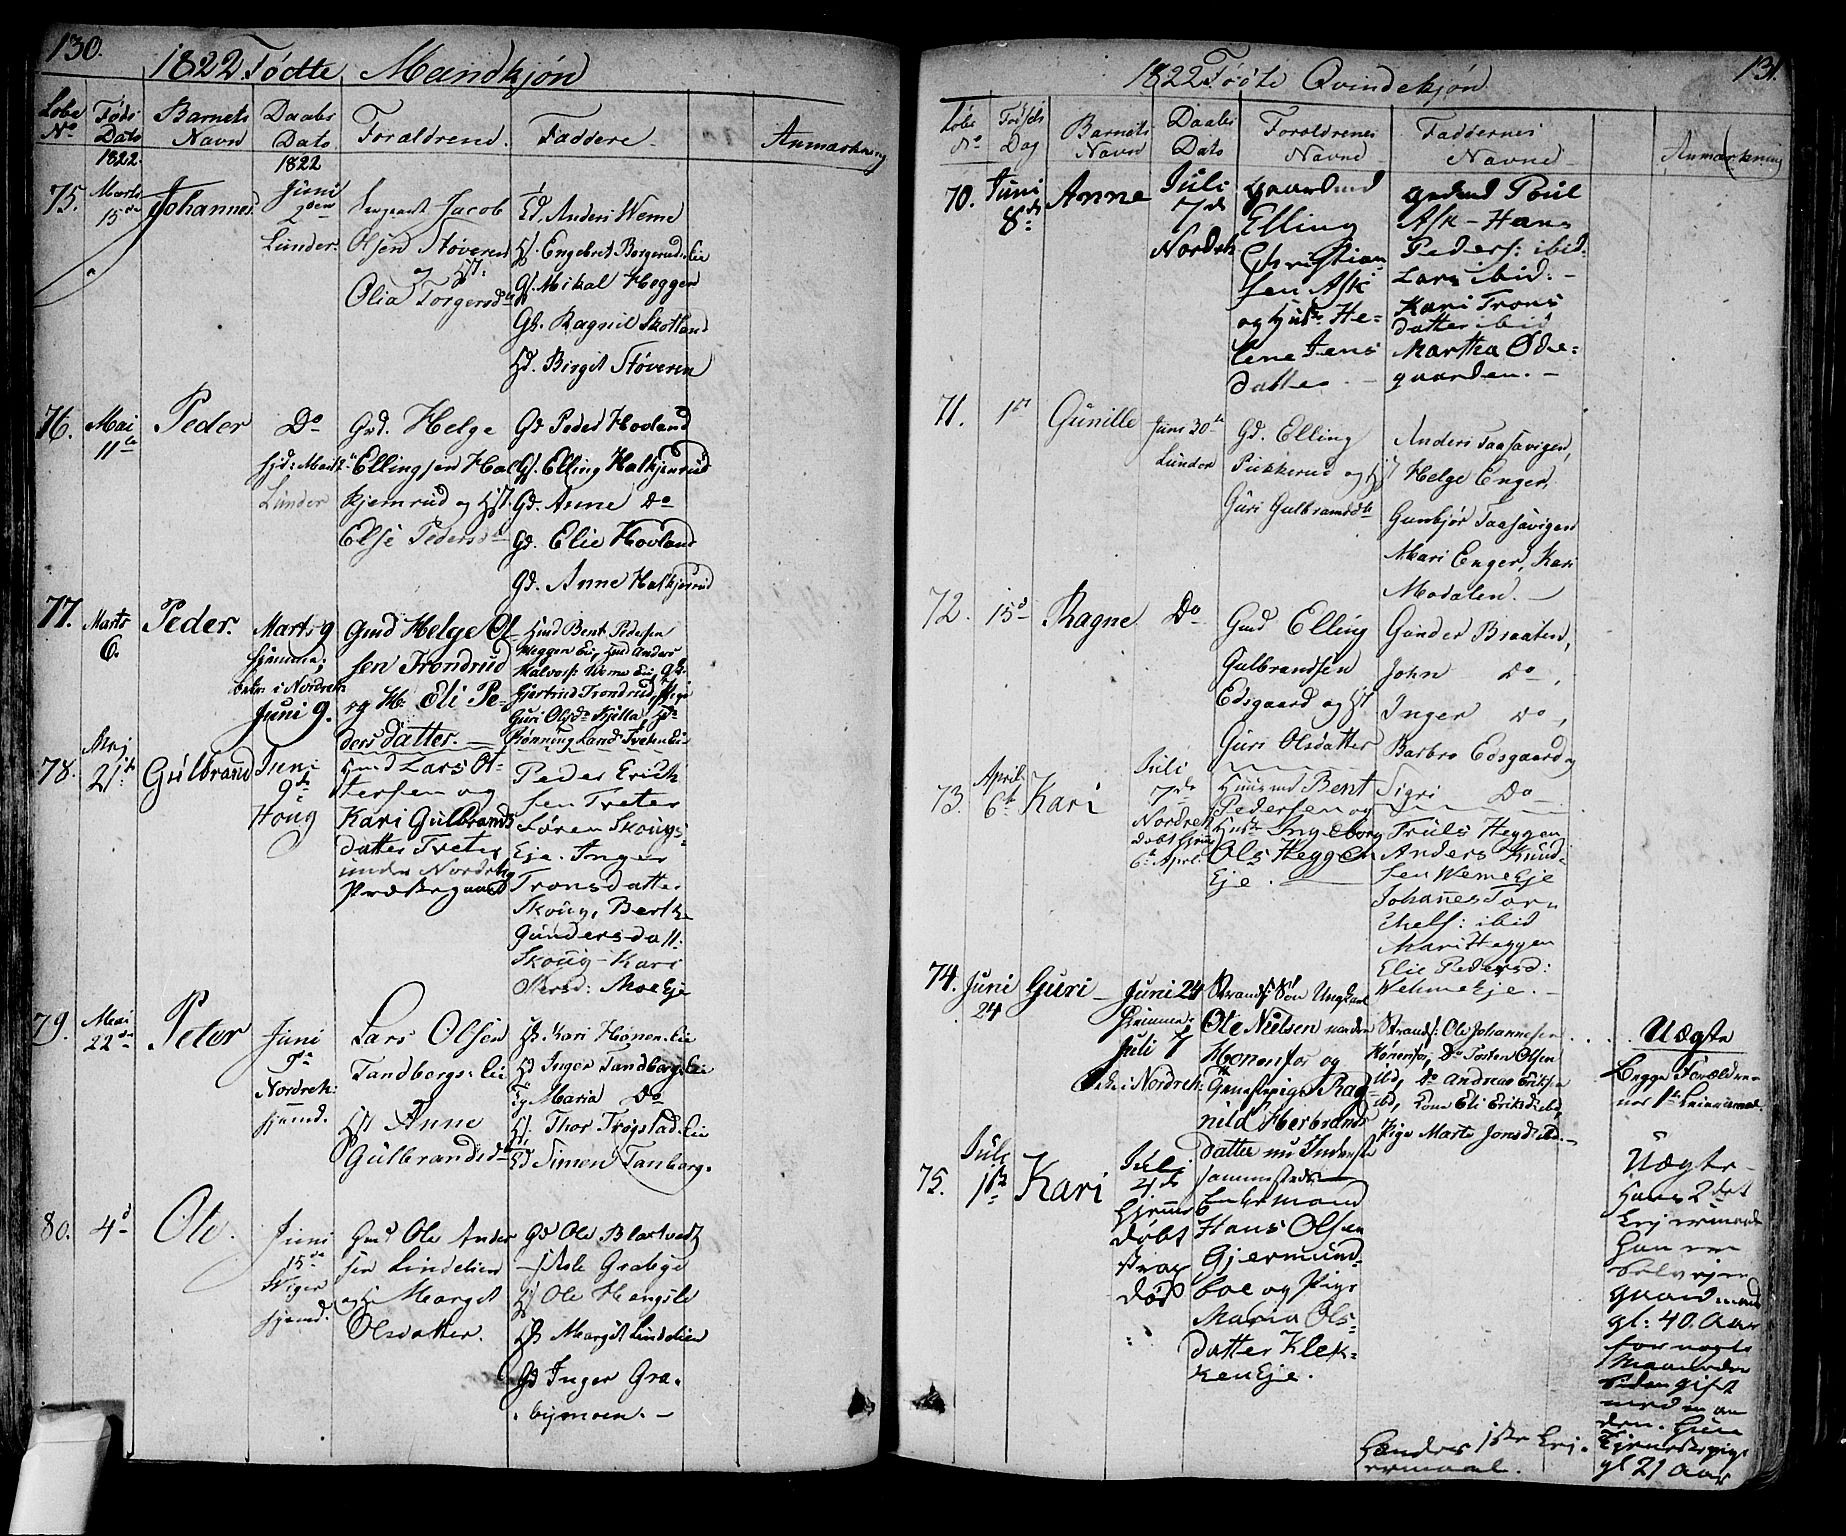 130.
1822 Fødte Mandkjøn
Løbe No
Føds Dato
Barnets Navn
Daabs Dato
Foraldrene.
Faddere
Anmærkning
1822.
1822
75.
Marts 15de
Johannes
Juni 2den
Lunder:
Sergeant Jacob
Olsen Støveren
og Hst.
Olia Torgersdtr
Gd. Anders Weme
Engebret Borgerud. Eie
Mikal Heggen
Gk. Ragnil Skotland
Birgit Støveren
76.
Mai 11te
Peder
Do
Lunder
Grd. Helge
Ellingsen Hal
kjemrud og Hst.
Else Pedersdtr
Gd Peder Hovland
Elling Halkjenrud
Gd. Anne Do
Gd. Elie Hovland
Gd. Anne Halkjenrud
77.
Marts 6.
Peder.
Marts 9
hjemme;
i Nordreh:
Juni 9.
Gmd Helge Ol
sen Trondrud
og H: Eli Pe-
dersdatter.
Hmd Bent Pedersen
Heggen Eie, Hmd Anders
Halvors: Weme Eie, Gk.
Gjertrud Trondrud, Pige
Guri Olsdr
Rønning Land Tveten Eie
78.
Maj 21de
Gulbrand
Juni 9de
Houg
Hmd Lars Ol
sen og
Kari Gulbrands
datter Tveter
under Nordreh:
Præstegaard
Peder Erich
sen Tveter
Søren Skougs-
Eje. Inger
Tronsdatter
Skoug, Berthe
Gundersdatt.
Skoug - Kari
Moe Eje
79.
Mai 22de
Peter
Juni 9de
Nordreh:
hjemd.
Lars Olsen
Tandbergs: Eie
Hst Anne
Gulbrandsd
Kari Hønen. Eie
Inger Tandbergs: Eie
Maria Do
Thor Trøgstad. Eie
Simen Tanberg.
80.
4de
Ole.
Juni 15de
Viger
hjemd.
Gmd Ole Ander
sen Lindelien
og Marget
Olsdatter.
Gd Ole Blaktvedt
Ole Grabye
Ole Hengsle
Margit Lindelien
Gd Inger Gra.
bymoen. -
131.
1822 Føøte Qvindekjøn
Løbe No
Fødsels Dag
Barnets Navn
Daabs Dato
Foroldrenes Navne
Faddernes Navne
Anmærkning
70.
Juni 8de
Anne
Juli 7de
Nordreh:
Gaardmd
Elling
Christian
sen Ask
og Hustr: He-
lene Jens
datter. -
Gaardmd Poul
Ask - Hans
Peders: ibid:
Lars ibid: -
Kari Trons
datter ibid
Martha Øde:
gaarden. -
71.
1ste
Gunille
Juni 30te
Lunder
Gd. Elling
Pukkerud og Hst
Guri Gulbrandsdtr
Anders Taasavigen,
Helge Enger,
Gunbjør Taasavigen
Mari Enger, Kari
Modalen. -
72.
15d
Ragne
Do
Gmd Elling
Gulbrandsen
Edsgaard og Hst
Guri Olsdatter
Gunder Braaten,
John Do,
Inger Do,
Barbro Edsgaard og
Sigri Do
73.
April 6te
Kari
Juli 7de
Nordreh
døbt hjem
6te April
Huusmd Bent
Pedersen og
Hustr Ingeborg
Ols Heggen
Eje.
Truls Heggen
Anders Knud-
sen Weme Eje
Johannes Tor-
chels: ibid
Mari Heggen
Elie Pedersd:
Wehme Eje. -
74.
Juni 24
Guri
Juni 24
hjemme;
Juli 7
i Nordreh:
Strands: Søn Ungkarl
Ole Nielsen norden
Hønenfos og
Tjenestepige Rag-
nild Herbrands
datter nu Inderst
sammesteds
Strands: Ole Johannesen
Hønenfos, Do Tosten Olsen
ibid, Do Andreas Eriksen
ibd, Kone Eli Eriksd ibid,
Pige Marte Jonsd ibd. -
Uægte
Begge Forældre-
nes 1te Leiermaal.
75.
Juli 1ste
Kari
Juli 4de
hjemme
døbt
strax
død
Enkemand
Hans Olsen
Gjermund
boe og Pige
Maria Ols-
datter Klek-
ken Eje.
Uægte -
Hans 2det
Lejermaal
han er
Selvejer
gaardmand
gl: 40. Aar
for nogle
Maaneder
siden gift
med en an
den. Hun
er Tjenestepige
gl 21 Aar
hendes 1ste Lej-
ermaal.